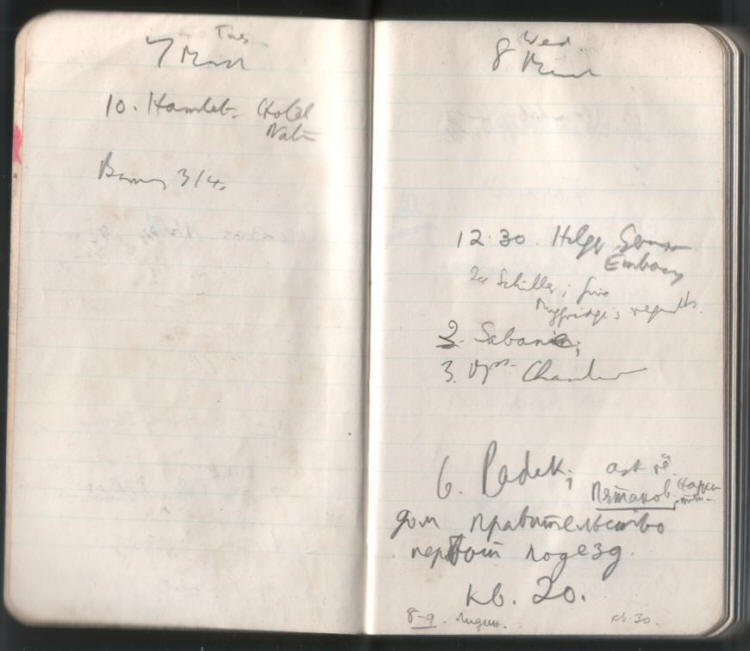 Tues
7 March
10. Hamlet. Hotel
Nat
3/4.
Wed.
8 March
12.30. Helger German
Embassy
Schiller; give
Muggeridge's regards.
2. Sabanin;
3. Chamber
6. Radek; ask re.
Пятаков,
дом правительство
первый подезд.
кв. 20.
8-9. Лидин. кв. 30.